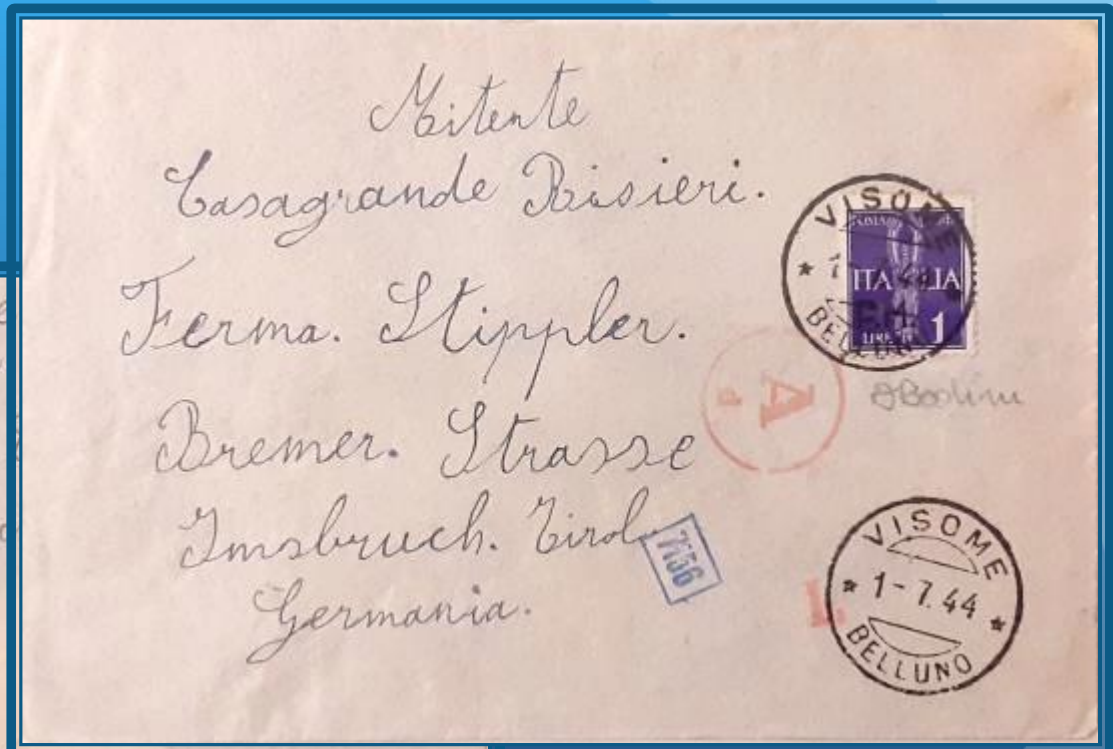 Mitente
Casagrande Risieri.
Ferma. Stippler.
Bremer. Strasse
Imsbruch. Tirol
Germania.
VISOME
BELLUNO
ITALIA
LIRE 1
A
7156
VISOME
1-7.44
BELLUNO